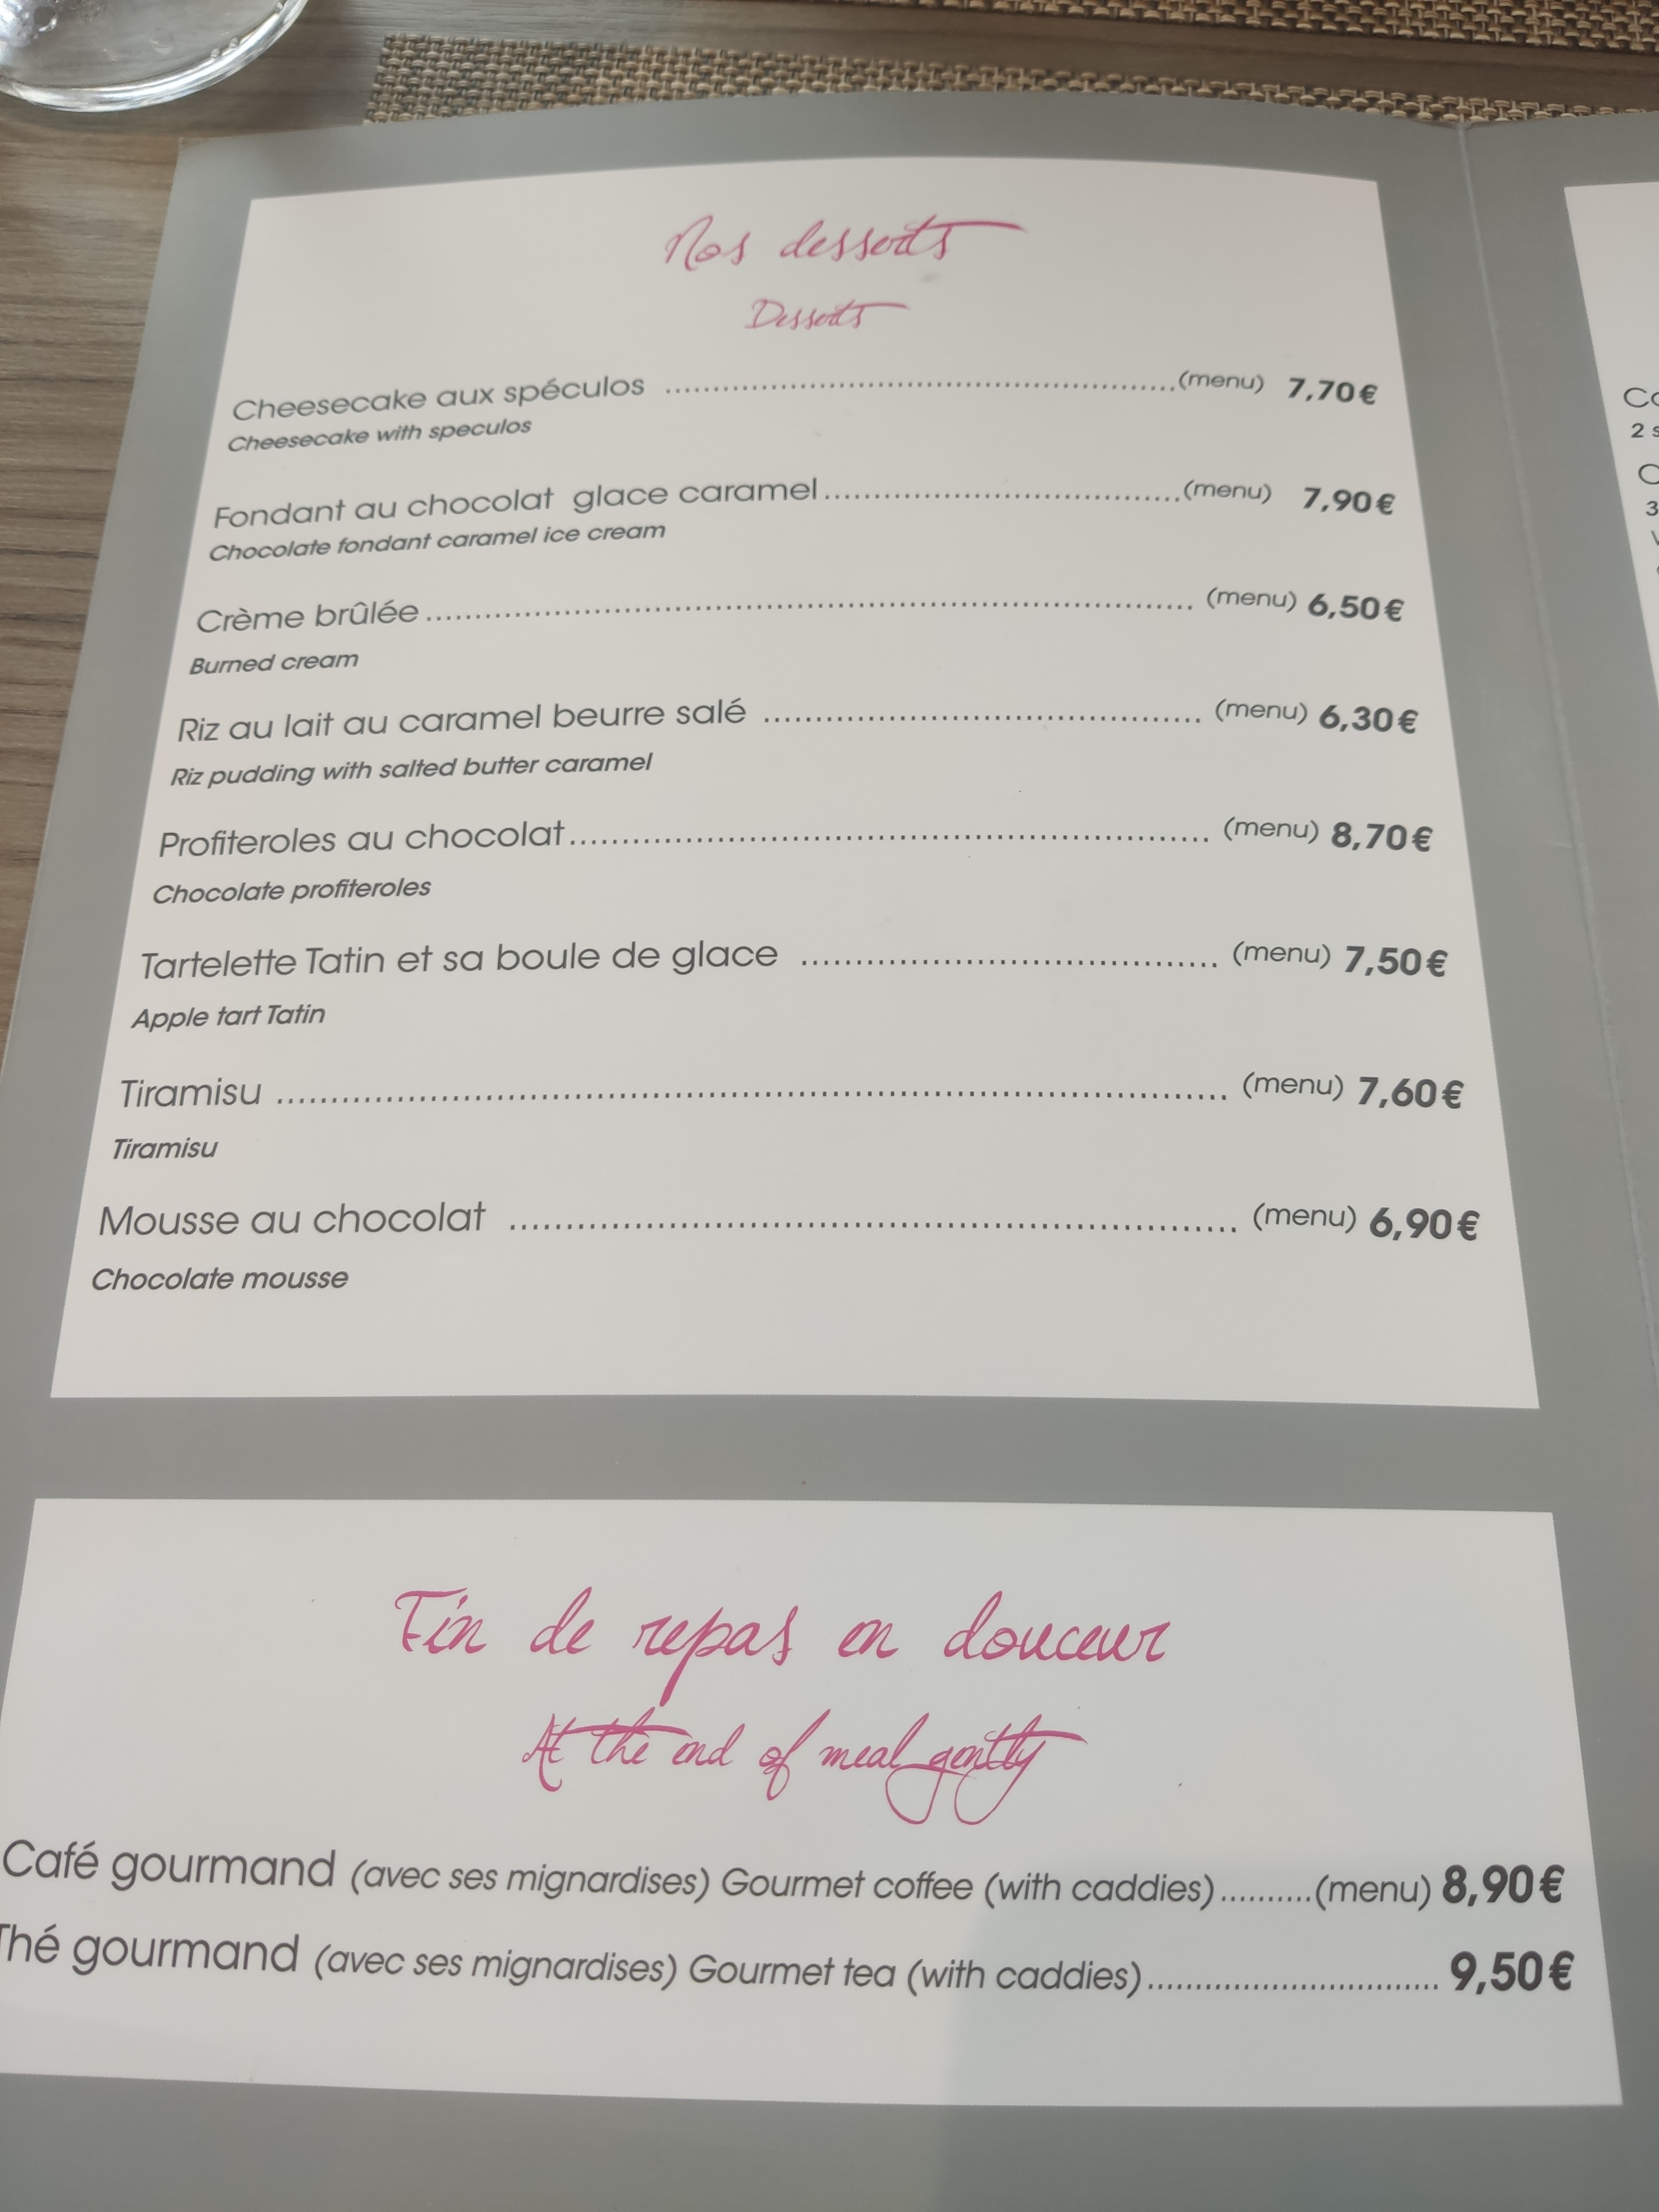 Nos desserts
Desserts
Cheesecake aux spéculos ........................................................(menu) 7,70€
Cheesecake with speculos
Fondant au chocolat glace caramel.......................................(menu) 7,90€
Chocolate fondant caramel ice cream
Crème brûlée................................................................................ (menu) 6,50€
Burned cream
Riz au lait au caramel beurre salé ............................................. (menu) 6,30€
Riz pudding with salted butter caramel
Profiteroles au chocolat................................................................ (menu) 8,70€
Chocolate profiteroles
Tartelette Tatin et sa boule de glace ........................................ (menu) 7,50€
Apple tart Tatin
Tiramisu .......................................................................................... (menu) 7,60€
Tiramisu
Mousse au chocolat ................................................................... (menu) 6,90€
Chocolate mousse
Fin de repas en douceur
At the end of meal gently
Café gourmand (avec ses mignardises) Gourmet coffee (with caddies)..........(menu) 8,90€
Thé gourmand (avec ses mignardises) Gourmet tea (with caddies)............................... 9,50€
2
3